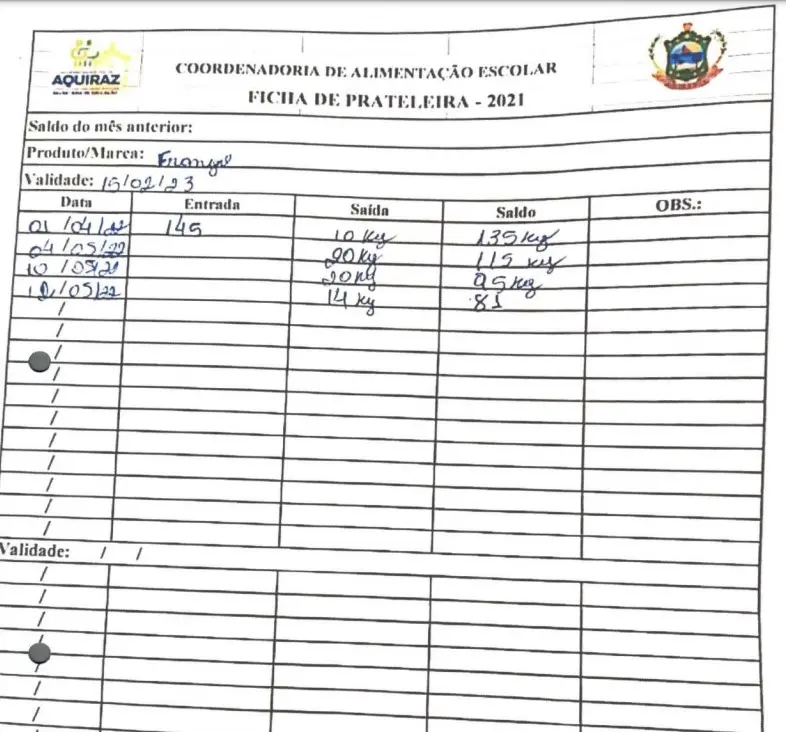 AQUIRAZ
COORDENADORIA DE ALIMENTAÇÃO ESCOLAR
FICHA DE PRATELEIRA - 2021
Saldo do mês anterior:
Produto/Marca: Frango
Validade: 15/02/23
Data Entrada Saída Saldo OBS.:
01/04/22 145 10 kg 135 kg
04/05/22 20 kg 115 kg
10/05/22 20 kg 95 kg
12/05/22 14 kg 81
/
/
/
/
/
/
/
/
/
/
/
Validade: / /
/
/
/
/
/
/
/